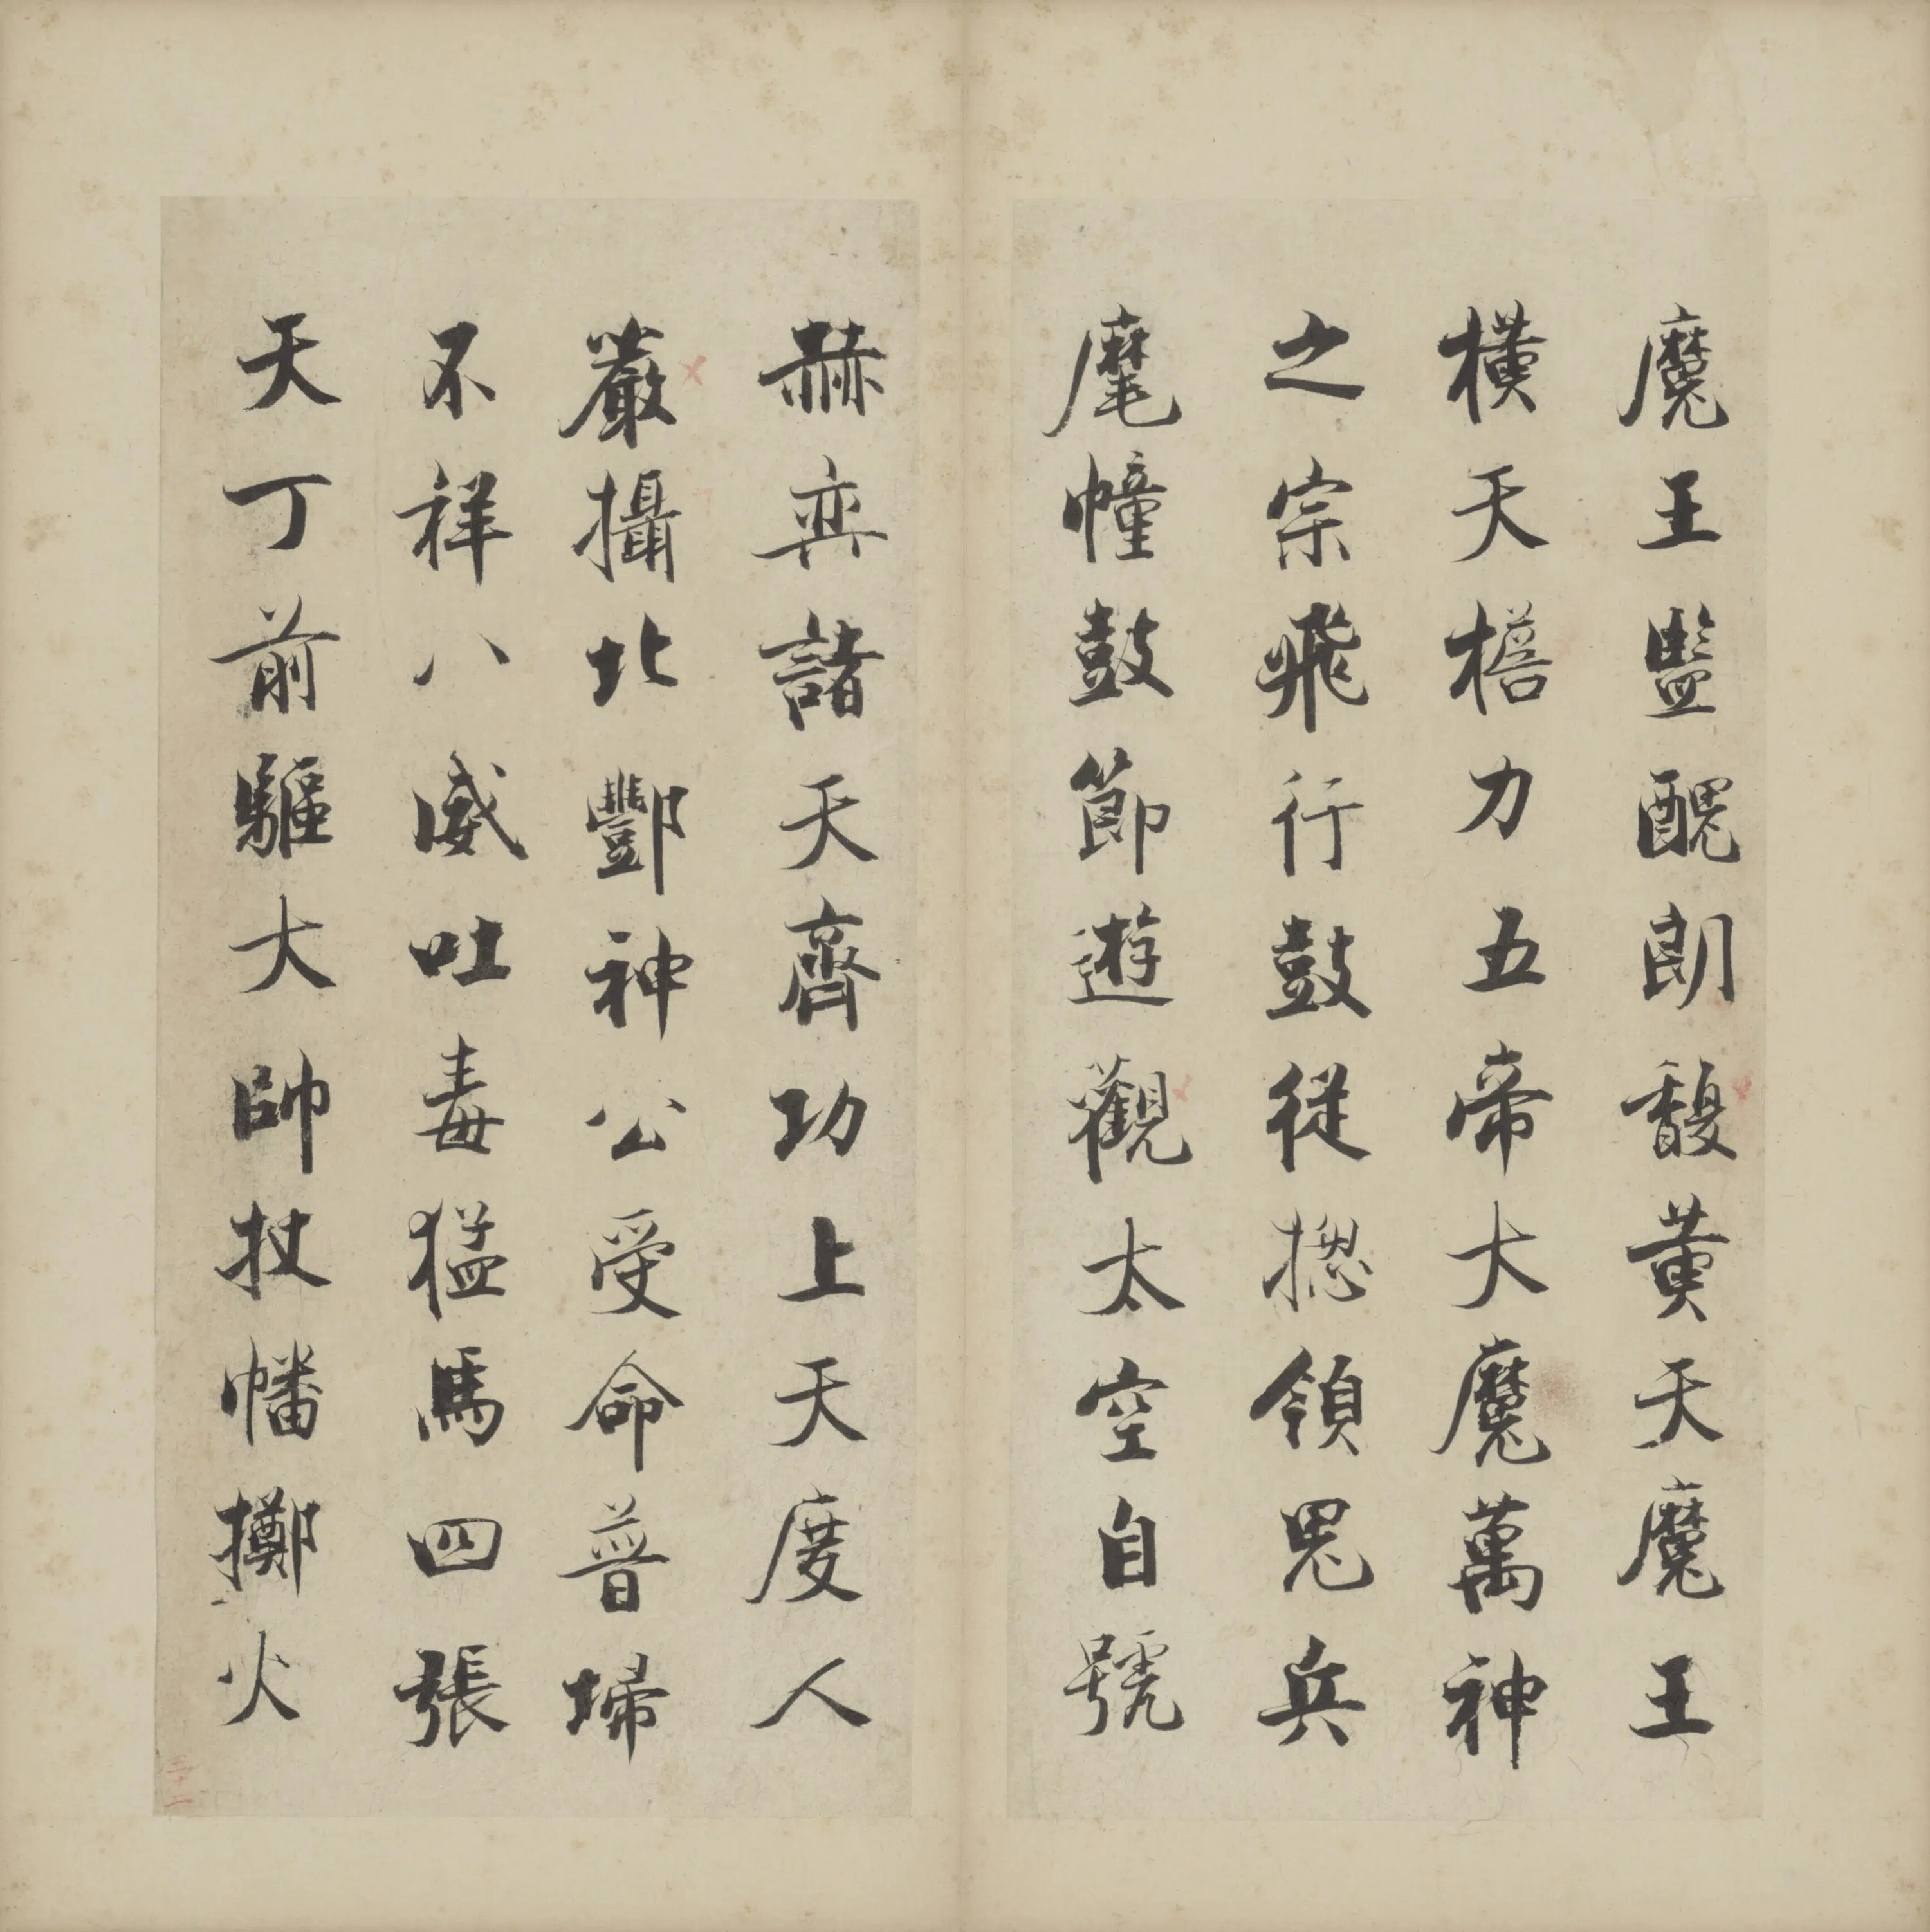 魔王監醜朗馥黄天魔王
横天檐力五帝大魔萬神
之宗飛行鼓従摠領鬼兵
麾幢鼓節遊觀太空自號
赫弈諸天齊功上天度人
嚴攝北酆神公受命普掃
不祥八威吐毒猛馬四張
天丁前驅大帥杖幡擲火